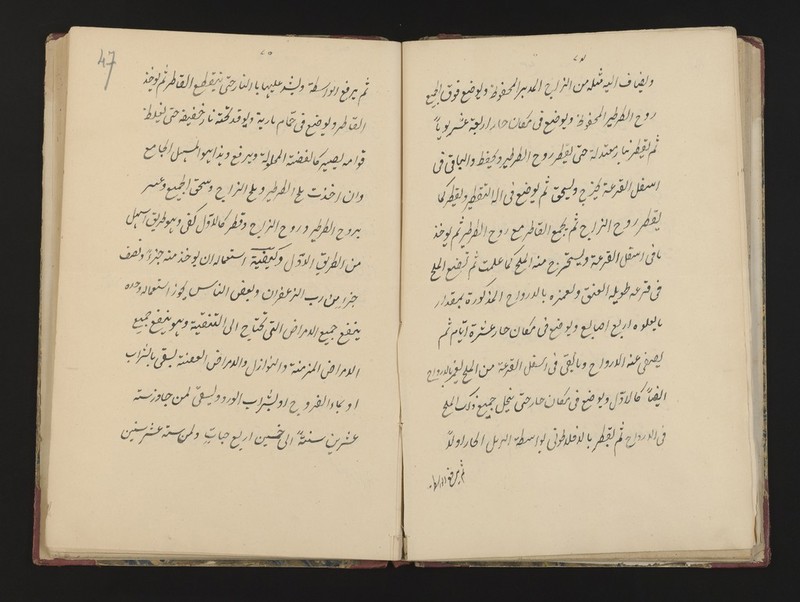 ويضاف اليه مثله من الزاج المدبر المحفوظ ويوضع فوق الجميع
روح الطرطير المحفوظ ويوضع فى مكان حار اربعة عشر يوما
ثم يقطر بنار معتدلة حتى يقطر روح الطرطير ويحفظ والباقى فى
اسفل القرعة يخرج ويسحق ثم يوضع فى الة التقطير ويقطر كما
يقطر روح الزاج ثم يجمع القاطر مع روح الطرطير ثم يوخذ
ما فى اسفل القرعة ويستخرج منه الملح كما علمت ثم تضع الملح
فى قرعة طويله العنق وتغمره بالارواح المذكورة بمقدار
ما يعلوه اربع اصابع ويوضع فى مكان حار عشرة ايام ثم
يصفى عنه الارواح وما يبقى فى اسفل القرعة من الملح يغمر بالارواح
ايضا كالاول ويوضع فى مكان حار حتى ينحل جميع ذلك الملح
فى الارواح ثم يقطر بالا بواسطة الزبل الحار اولا
ثم يرفع
47
ثم يرفع الواسطة ويشد عليها بالنار حتى ينقطع القاطر ثم يوخذ
القاطر ويوضع فى حمام مارية ويوقد تحته نار خفيفة حتى يغلظ
قوامه يصير كالفضة المحلولة ويرفع وهذا هو المسهل الجامع
وان اخذت ملح الطرطير وملح الزاج وسحق الجميع وغمر
بروح الطرطير وروح الزاج وقطر كالاول كفى وهو طريق اسهل
من الطريق الاول وكيفية استعماله ان يوخذ منه جزء ونصف
جزء من رب الزعفران وبعض الناس يجوز استعماله وحده
ينفع جميع الامراض التى تحتاج الى التنقية وهو ينفع جميع
الامراض المزمنة والنوازل والامراض العفنة يسقى بالشراب
او بماء الفروج او بشراب الورد ويسقى لمن جاوز سنه
عشرين سنة الى خمسين اربع حبات ولمن سنه عشر سنين